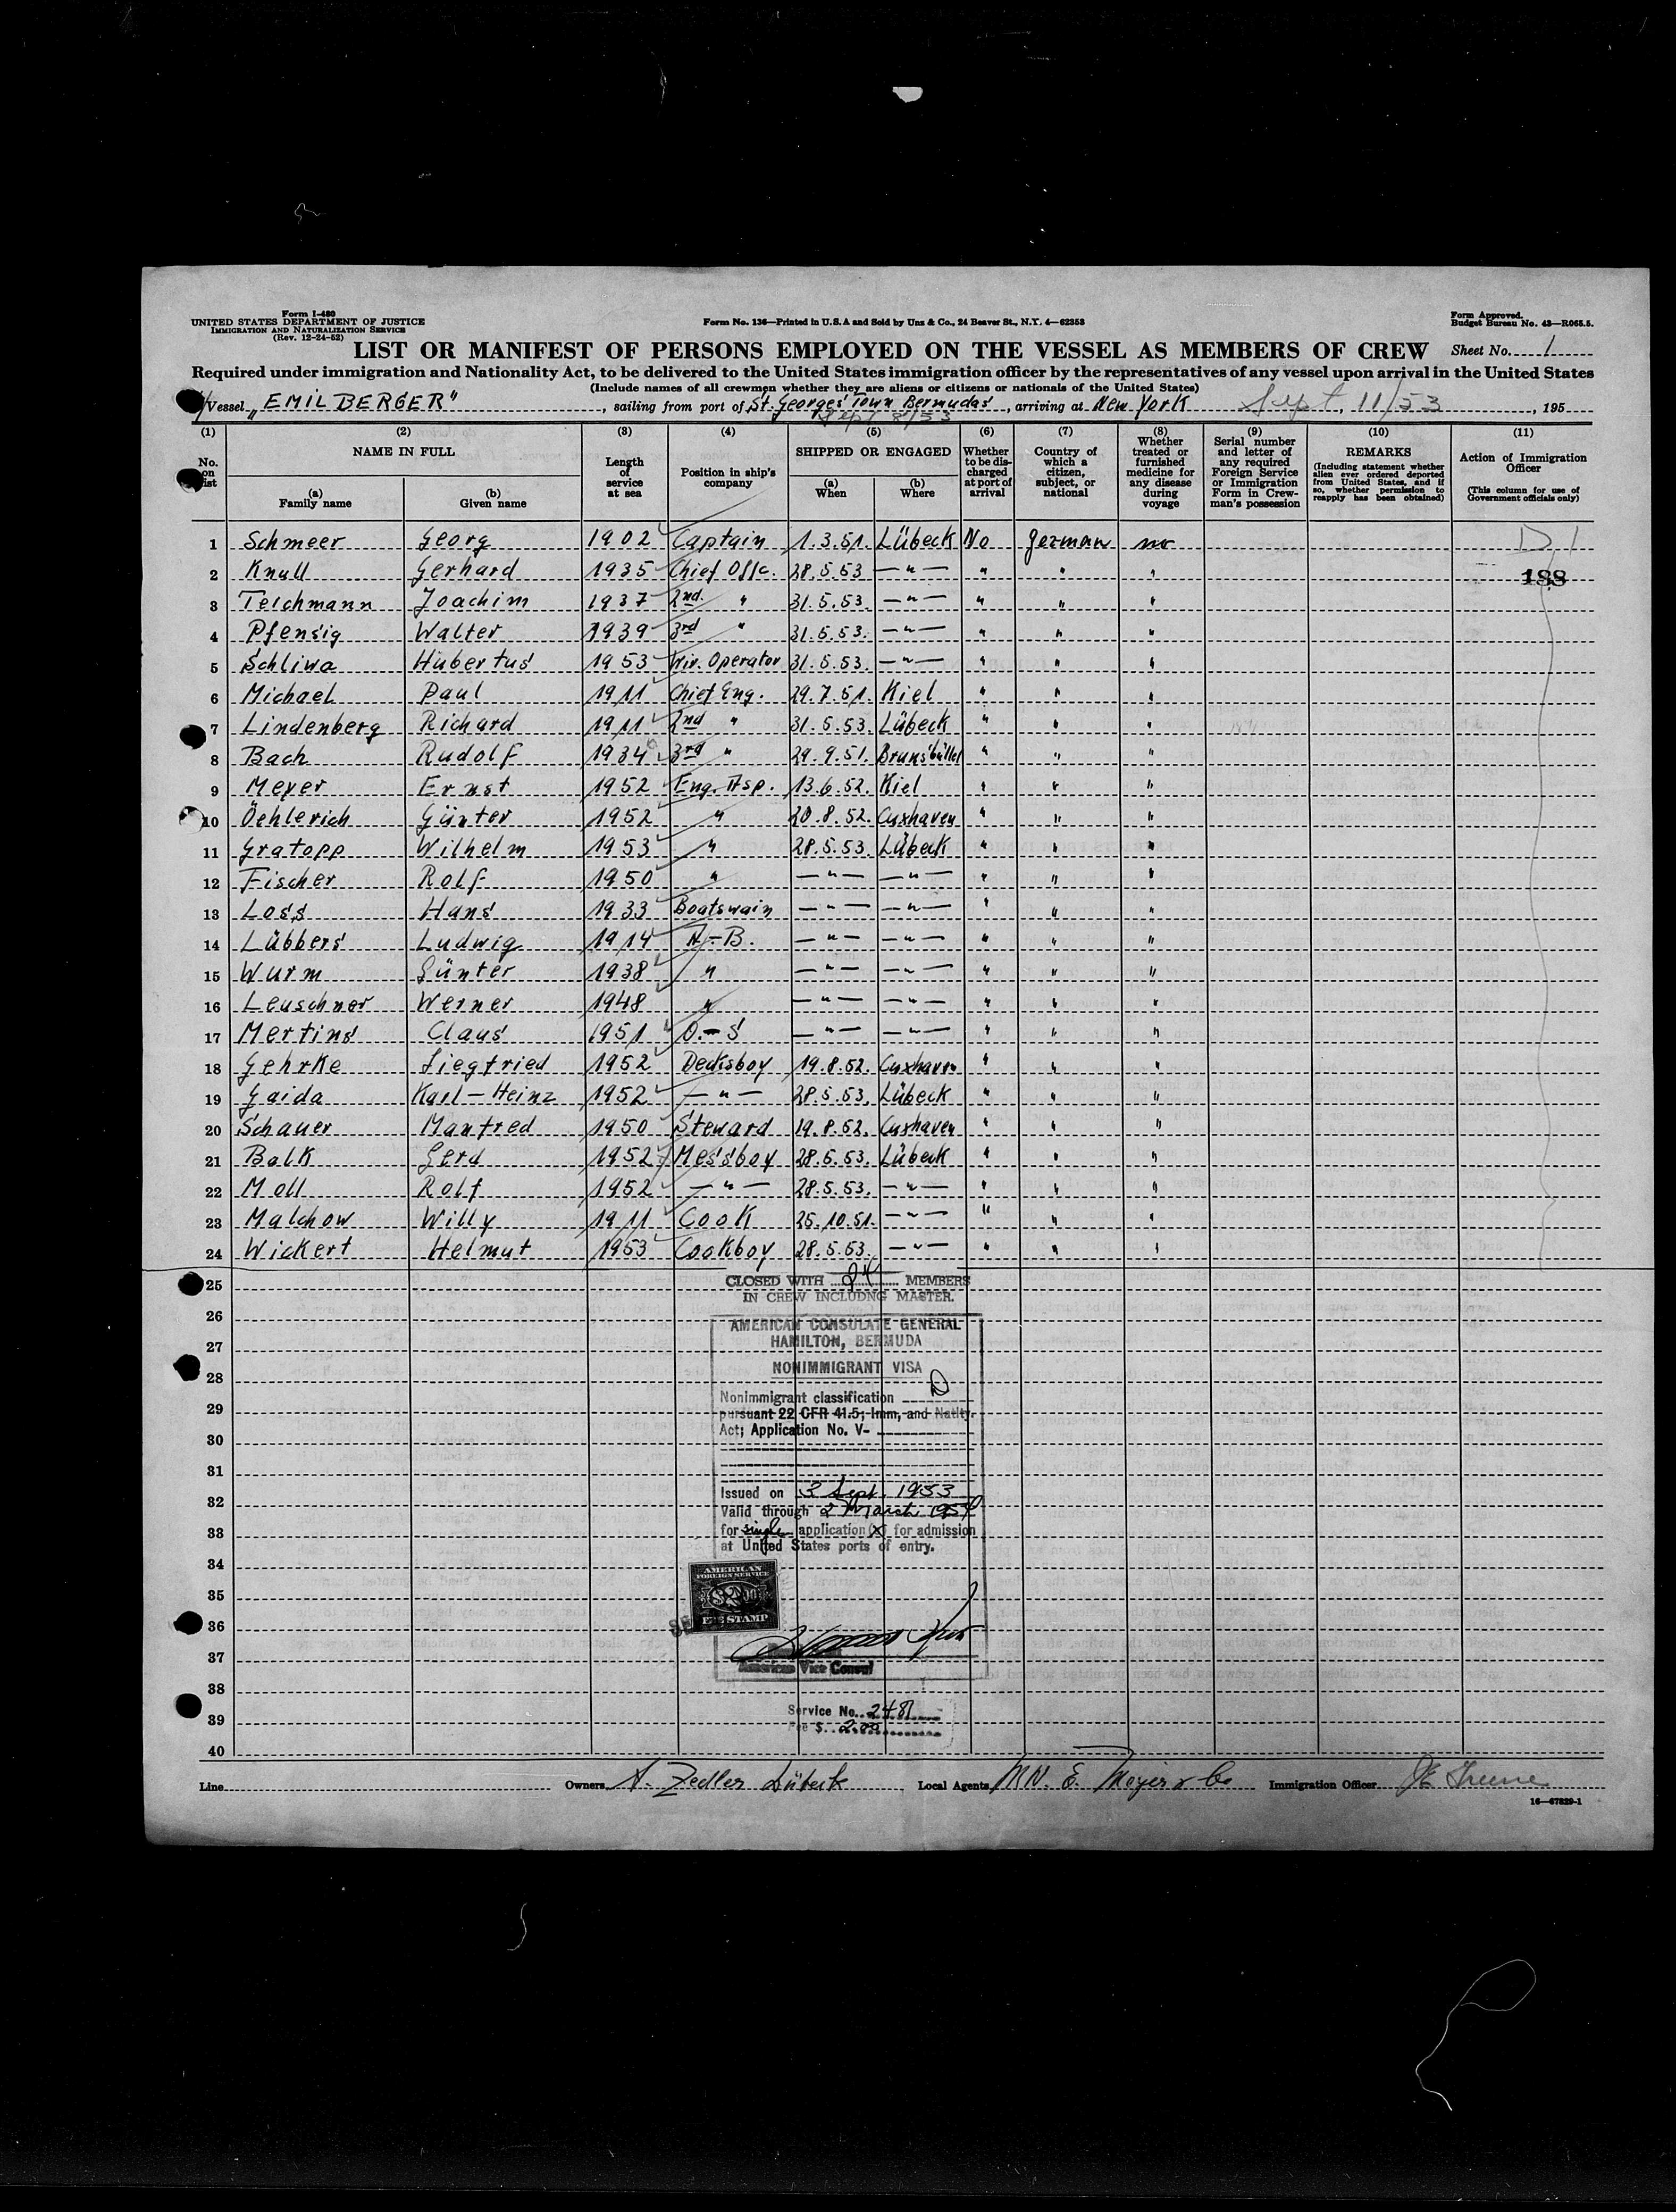 Form I-480
UNITED STATES DEPARTMENT OF JUSTICE
IMMIGRATION AND NATURALIZATION SERVICE
(Rev. 12-24-52)
Form No. 136—Printed in U.S.A and Sold by Unz & Co., 24 Beaver St., N.Y. 4—62353
Form Approved.
Budget Bureau No. 43—R065.5.
LIST OR MANIFEST OF PERSONS EMPLOYED ON THE VESSEL AS MEMBERS OF CREW Sheet No. 1
Required under immigration and Nationality Act, to be delivered to the United States immigration officer by the representatives of any vessel upon arrival in the United States
(Include names of all crewmen whether they are aliens or citizens or nationals of the United States)
Vessel „EMIL BERGER", sailing from port of St. Georges' Town Bermudas, arriving at New York Sept. 11/53, 195
Sept 8/53
(1) (2) (3) (4) (5) (6) (7) (8) (9) (10) (11)
No. on list
NAME IN FULL
(a) Family name
(b) Given name
Length of service at sea
Position in ship's company
SHIPPED OR ENGAGED
(a) When
(b) Where
Whether to be discharged at port of arrival
Country of which a citizen, subject, or national
Whether treated or furnished medicine for any disease during voyage
Serial number and letter of any required Foreign Service or Immigration Form in Crewman's possession
REMARKS
(Including statement whether alien ever ordered deported from United States, and if so, whether permission to reapply has been obtained)
Action of Immigration Officer
(This column for use of Government officials only)
1 Schmeer Georg 1902 Captain 1.3.51. Lübeck No german no D 1
2 Knull Gerhard 1935 Chief Offc. 28.5.53 —"— " " " 188
3 Teichmann Joachim 1937 2nd. " 31.5.53. —"— " " "
4 Pfensig Walter 1939 3rd " 31.5.53. —"— " " "
5 Schliwa Hubertus 1953 Wir. Operator 31.5.53. —"— " " "
6 Michael Paul 1911 Chief Eng. 29.7.51. Kiel " " "
7 Lindenberg Richard 1911 2nd " 31.5.53. Lübeck " " "
8 Bach Rudolf 1934 3rd " 29.9.51. Brunsbüttel " " "
9 Meyer Ernst 1952 Eng. Asp. 13.6.52. Kiel " " "
10 Öehlerich Günter 1952 " 20.8.52. Cuxhaven " " "
11 Gratopp Wilhelm 1953 " 28.5.53. Lübeck " " "
12 Fischer Rolf 1950 " —"— —"— " " "
13 Loss Hans 1933 Boatswain —"— —"— " " "
14 Lübbers Ludwig 1914 A.-B. —"— —"— " " "
15 Wurm Günter 1938 " —"— —"— " " "
16 Leuschner Werner 1948 " —"— —"— " " "
17 Mertins Claus 1951 O.-S —"— —"— " " "
18 Gehrke Siegfried 1952 Decksboy 19.8.52. Cuxhaven " " "
19 Gaida Karl-Heinz 1952 —"— 28.5.53. Lübeck " " "
20 Schauer Manfred 1950 Steward 19.8.52. Cuxhaven " " "
21 Balk Gerd 1952 Messboy 28.5.53. Lübeck " " "
22 Moll Rolf 1952 —"— 28.5.53. —"— " " "
23 Malchow Willy 1911 Cook 25.10.51. —"— " " "
24 Wickert Helmut 1953 Cookboy 28.5.53. —"— " " "
25
CLOSED WITH 24 MEMBERS
IN CREW INCLUDNG MASTER.
26
AMERICAN CONSULATE GENERAL
27
HAMILTON, BERMUDA
NONIMMIGRANT VISA
28
Nonimmigrant classification D
29
pursuant 22 CFR 41.5; Imm, and Natlty.
Act; Application No. V-
30
31
Issued on 3 Sept. 1953
32
Valid through 2 March 1954
33
for single application (x) for admission
at United States ports of entry.
34
AMERICAN
FOREIGN SERVICE
35
$2.00
FEE STAMP
36
37
American Vice Consul
38
Service No. 2481
39
Fee $. 2.00
40
Line Owners A. Zedler Lübeck Local Agents M.N. E. Meyer & Co Immigration Officer JE Greene
16—67829-1